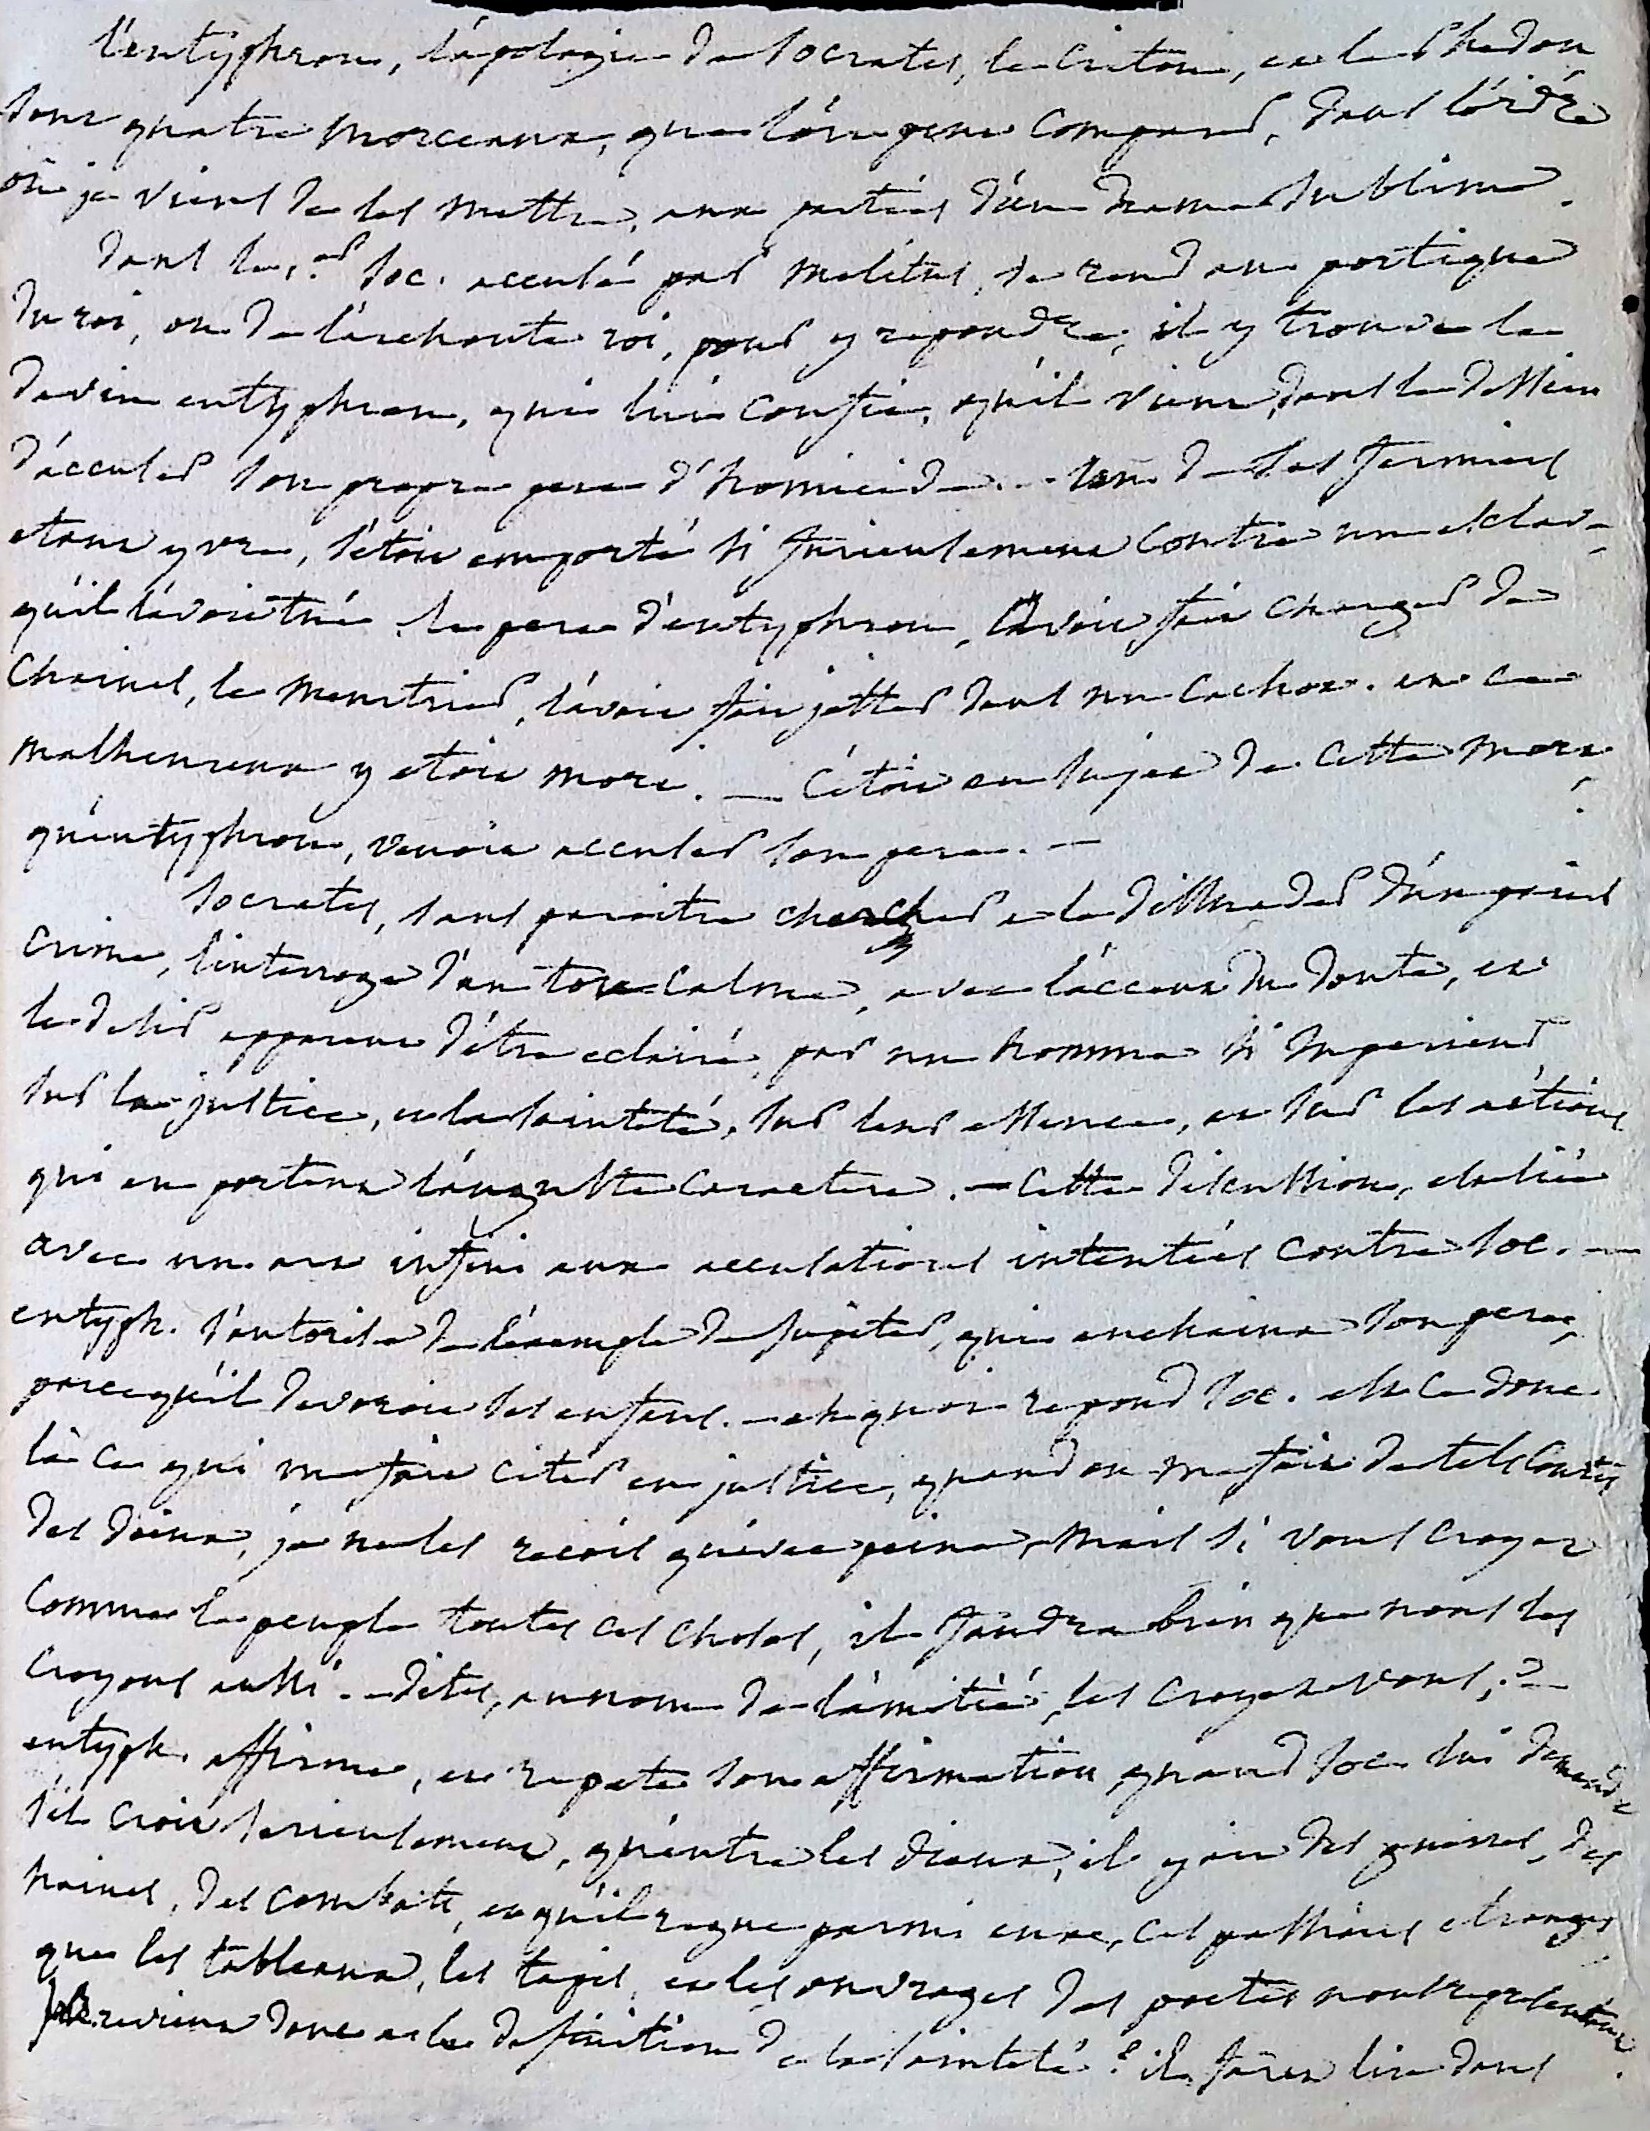 l'eutyphron, l'apologie de Socrates, le Criton, et le Phedon
sont quatre morceaux, que l'on peut comparer, dans l'ordre
où je viens de les mettre, aux parties d'un drame sublime.
dans le 1.er Soc. accusé par Melitus, se rend au portique
du roi, ou de l'archonte roi, pour y repondre, il y trouve le
devin eutyphron, qui lui confie, qu'il vient dans le dessein
d'accuser son propre pere d'homicide. - un de ses fermiers
etant yvre, s'étoit emporté si furieusement contre un esclave,
qu'il l'avoit tué. le pere d'eutyphron, avoit fait charger de
chaines, le meurtrier, l'avoit fait jetter dans un cachot. et ce
malheureux y etoit mort. — C'étoit au sujet de cette mort
qu'eutyphron, venoit accuser son pere. —
Socrates, sans paroitre chercher a le dissuader d'un pareil
crime, l'interroge d'un ton calme, avec l'accent du doute, et
le desir apparent d'être eclairé, par un homme si superieur
sur la justice, et la sainteté, sur leur essence, et sur les actions
qui en portent l'auguste caractere. — Cette discussion, est liée
avec un art infini aux accusations intentées contre Soc. —
eutyph. s'autorise de l'exemple de Jupiter, qui enchaina son pere,
parcequ'il devoroit ses enfans. — eh quoi repond Soc. est ce donc
là ce qui me fait citer en justice, quand on me fait de tels contes
des dieux, je ne les reçois qu'avec peine, mais si vous croyez
comme le peuple toutes ces choses, il faudra bien que nous les
croyons aussi. — dites, au nom de l'amitié, les croyez vous,? —
eutyph. affirme, et repete son affirmation quand Soc. lui demande
s'il croit serieusement, qu'entre les dieux, il y ait des guerres, des
haines, des combats, et qu'il regne parmi eux, ces passions etranges
que les tableaux, les tapis, et les ouvrages des poetes nous representent.
revient donc a la definition de la sainteté? il faut lire dans